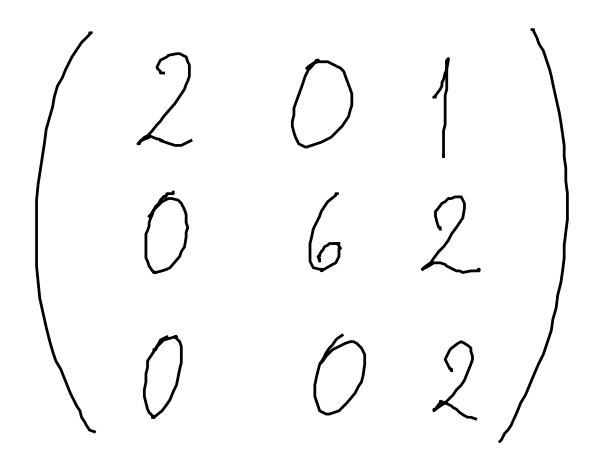 2 0 1
0 6 2
0 0 2